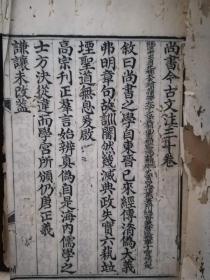 尚書今古文注三十卷
敘曰尚書之學自東晉已來經傳淆僞大義
弗明章句故訓闇然幾滅典政失實六埶
堙聖道無息易啟
高宗刊正羣言始辨真僞自是海内儒學之
士方決從違而學官所頒仍唐正義
謙讓未改蓋